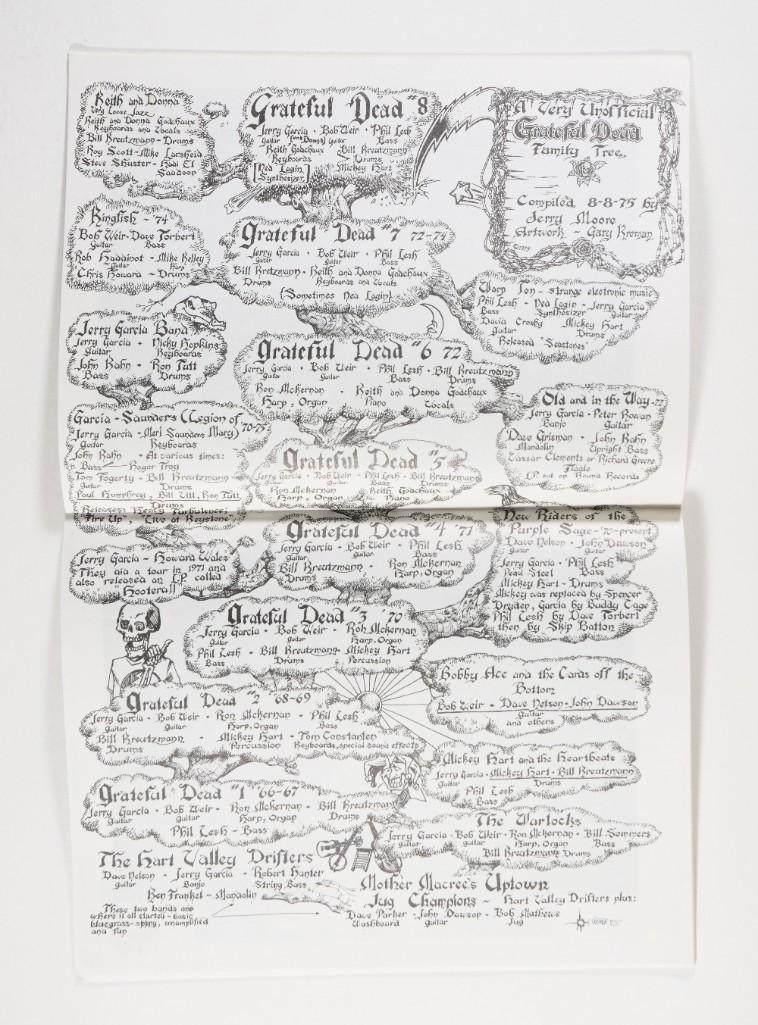 Keith and Donna
Very Loose Jazz
Keith and Donna Godchaux
Keyboards and Vocals
Bill Kreutzmann - Drums
Ray Scott - Mike Larsheid
Steve Shuster - Hadi El
Sadoon
Grateful Dead #8
Jerry Garcia · Bob Weir · Phil Lesh
guitar guitar Bass
Keith Godchaux · Bill Kreutzmann
Keyboards Drums
[Ned Lagin] Mickey Hart
Synthesizer
A Very Unofficial
Grateful Dead
Family Tree
Compiled 8-8-75 by
Jerry Moore
Artwork - Gary Kroman
Kingfish - '74
Bob Weir - Dave Torbert
Guitar Bass
Rob Hoddinot - Mike Kelley
Guitar Harp
Chris Howard - Drums
Grateful Dead #7 72-74
Jerry Garcia · Bob Weir · Phil Lesh
guitar guitar Bass
Bill Kretzmann · Keith and Donna Godchaux
Drums Keyboards and Vocals
[Sometimes Ned Lagin]
Warp Ten - strange electronic music
Phil Lesh - Ned Lagin - Jerry Garcia
Bass Synthesizer guitar
David Crosby Mickey Hart
guitar Drums
Released "Seastones"
Jerry Garcia Band
Jerry Garcia - Nicky Hopkins
Guitar Keyboards
John Kahn - Ron Tutt
Bass Drums
Grateful Dead #6 72
Jerry Garcia · Bob Weir · Phil Lesh · Bill Kreutzmann
Guitar Guitar Bass Drums
Ron Mckernan · Keith and Donna Godchaux
Harp, Organ Piano Vocals
Old and in the Way
Jerry Garcia - Peter Rowan
Banjo Guitar
Dave Grisman - John Kahn
Mandolin Upright Bass
Vassar Clements or Richard Greene
Fiddle
LP out on Round Records
Garcia - Saunders (Legion of
Mary) 70-75
Jerry Garcia - Merl Saunders
guitar Keyboards
John Kahn · At various times:
Bass
Tom Fogerty - Bill Kreutzmann
guitar Drums
Paul Humphrey, Bill Vitt, Ron Tutt
Drums
Releases: Heavy Turbulence,
"Fire Up", "Live at Keystone"
Grateful Dead #5
Jerry Garcia · Bob Weir · Phil Lesh · Bill Kreutzmann
Guitar Guitar Bass Drums
Ron Mckernan · Keith Godchaux
Harp, Organ Piano
Jerry Garcia - Howard Wales
They did a tour in 1971 and
also released an LP called
"Hooteroll"
Grateful Dead #4 '71
Jerry Garcia · Bob Weir · Phil Lesh
Guitar Guitar Bass
Bill Kreutzmann Ron Mckernan
Drums Harp, Organ
New Riders of the
Purple Sage - '70 - present
Dave Nelson - John Dawson
guitar guitar
Jerry Garcia - Phil Lesh
Pedal Steel Bass
Mickey Hart - Drums
Mickey was replaced by Spencer
Dryden, Garcia by Buddy Cage
Phil Lesh by Dave Torbert
then by Skip Batton
Grateful Dead #3 '70
Jerry Garcia · Bob Weir · Ron Mckernan
Guitar Guitar Harp, Organ
Phil Lesh · Bill Kreutzmann · Mickey Hart
Bass Drums Percussion
Bobby Ace and the Cards off the
Bottom
Bob Weir - Dave Nelson - John Dawson
Guitar
and others
Grateful Dead #2 '68-69
Jerry Garcia · Bob Weir · Ron Mckernan · Phil Lesh
Guitar Guitar Harp, Organ Bass
Bill Kreutzmann · Mickey Hart · Tom Constanten
Drums Percussion Keyboards, special sound effects
Mickey Hart and the Heartbeats
Jerry Garcia · Mickey Hart · Bill Kreutzmann
guitar Drums
Phil Lesh
Bass
Grateful Dead #1 '66-67
Jerry Garcia · Bob Weir · Ron Mckernan · Bill Kreutzmann
Guitar Guitar Harp, Organ Drums
Phil Lesh - Bass
The Warlocks
Jerry Garcia · Bob Weir · Ron Mckernan · Bill Sommers
guitar guitar Harp, Organ Bass
Bill Kreutzmann Drums
The Hart Valley Drifters
Dave Nelson - Jerry Garcia - Robert Hunter
guitar Banjo String Bass
Ben Frankel - Mandolin
These two bands are
where it all started - basic
bluegrass - sloppy, unamplified
and fun
Mother Macree's Uptown
Jug Champions - Hart Valley Drifters plus:
Dave Parker - John Dawson - Bob Mathews
Washboard guitar Jug